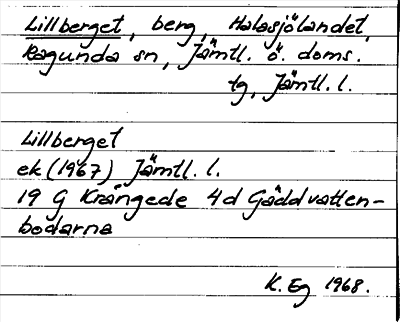 Lillberget, berg, Halasjölandet,
Ragunda sn, Jämtl. ö. doms.
tg, Jämtl. l.
Lillberget
ek (1967) Jämtl. l.
19 G Krångede 4d Gäddvatten-
bodarna
K. Eg 1968.